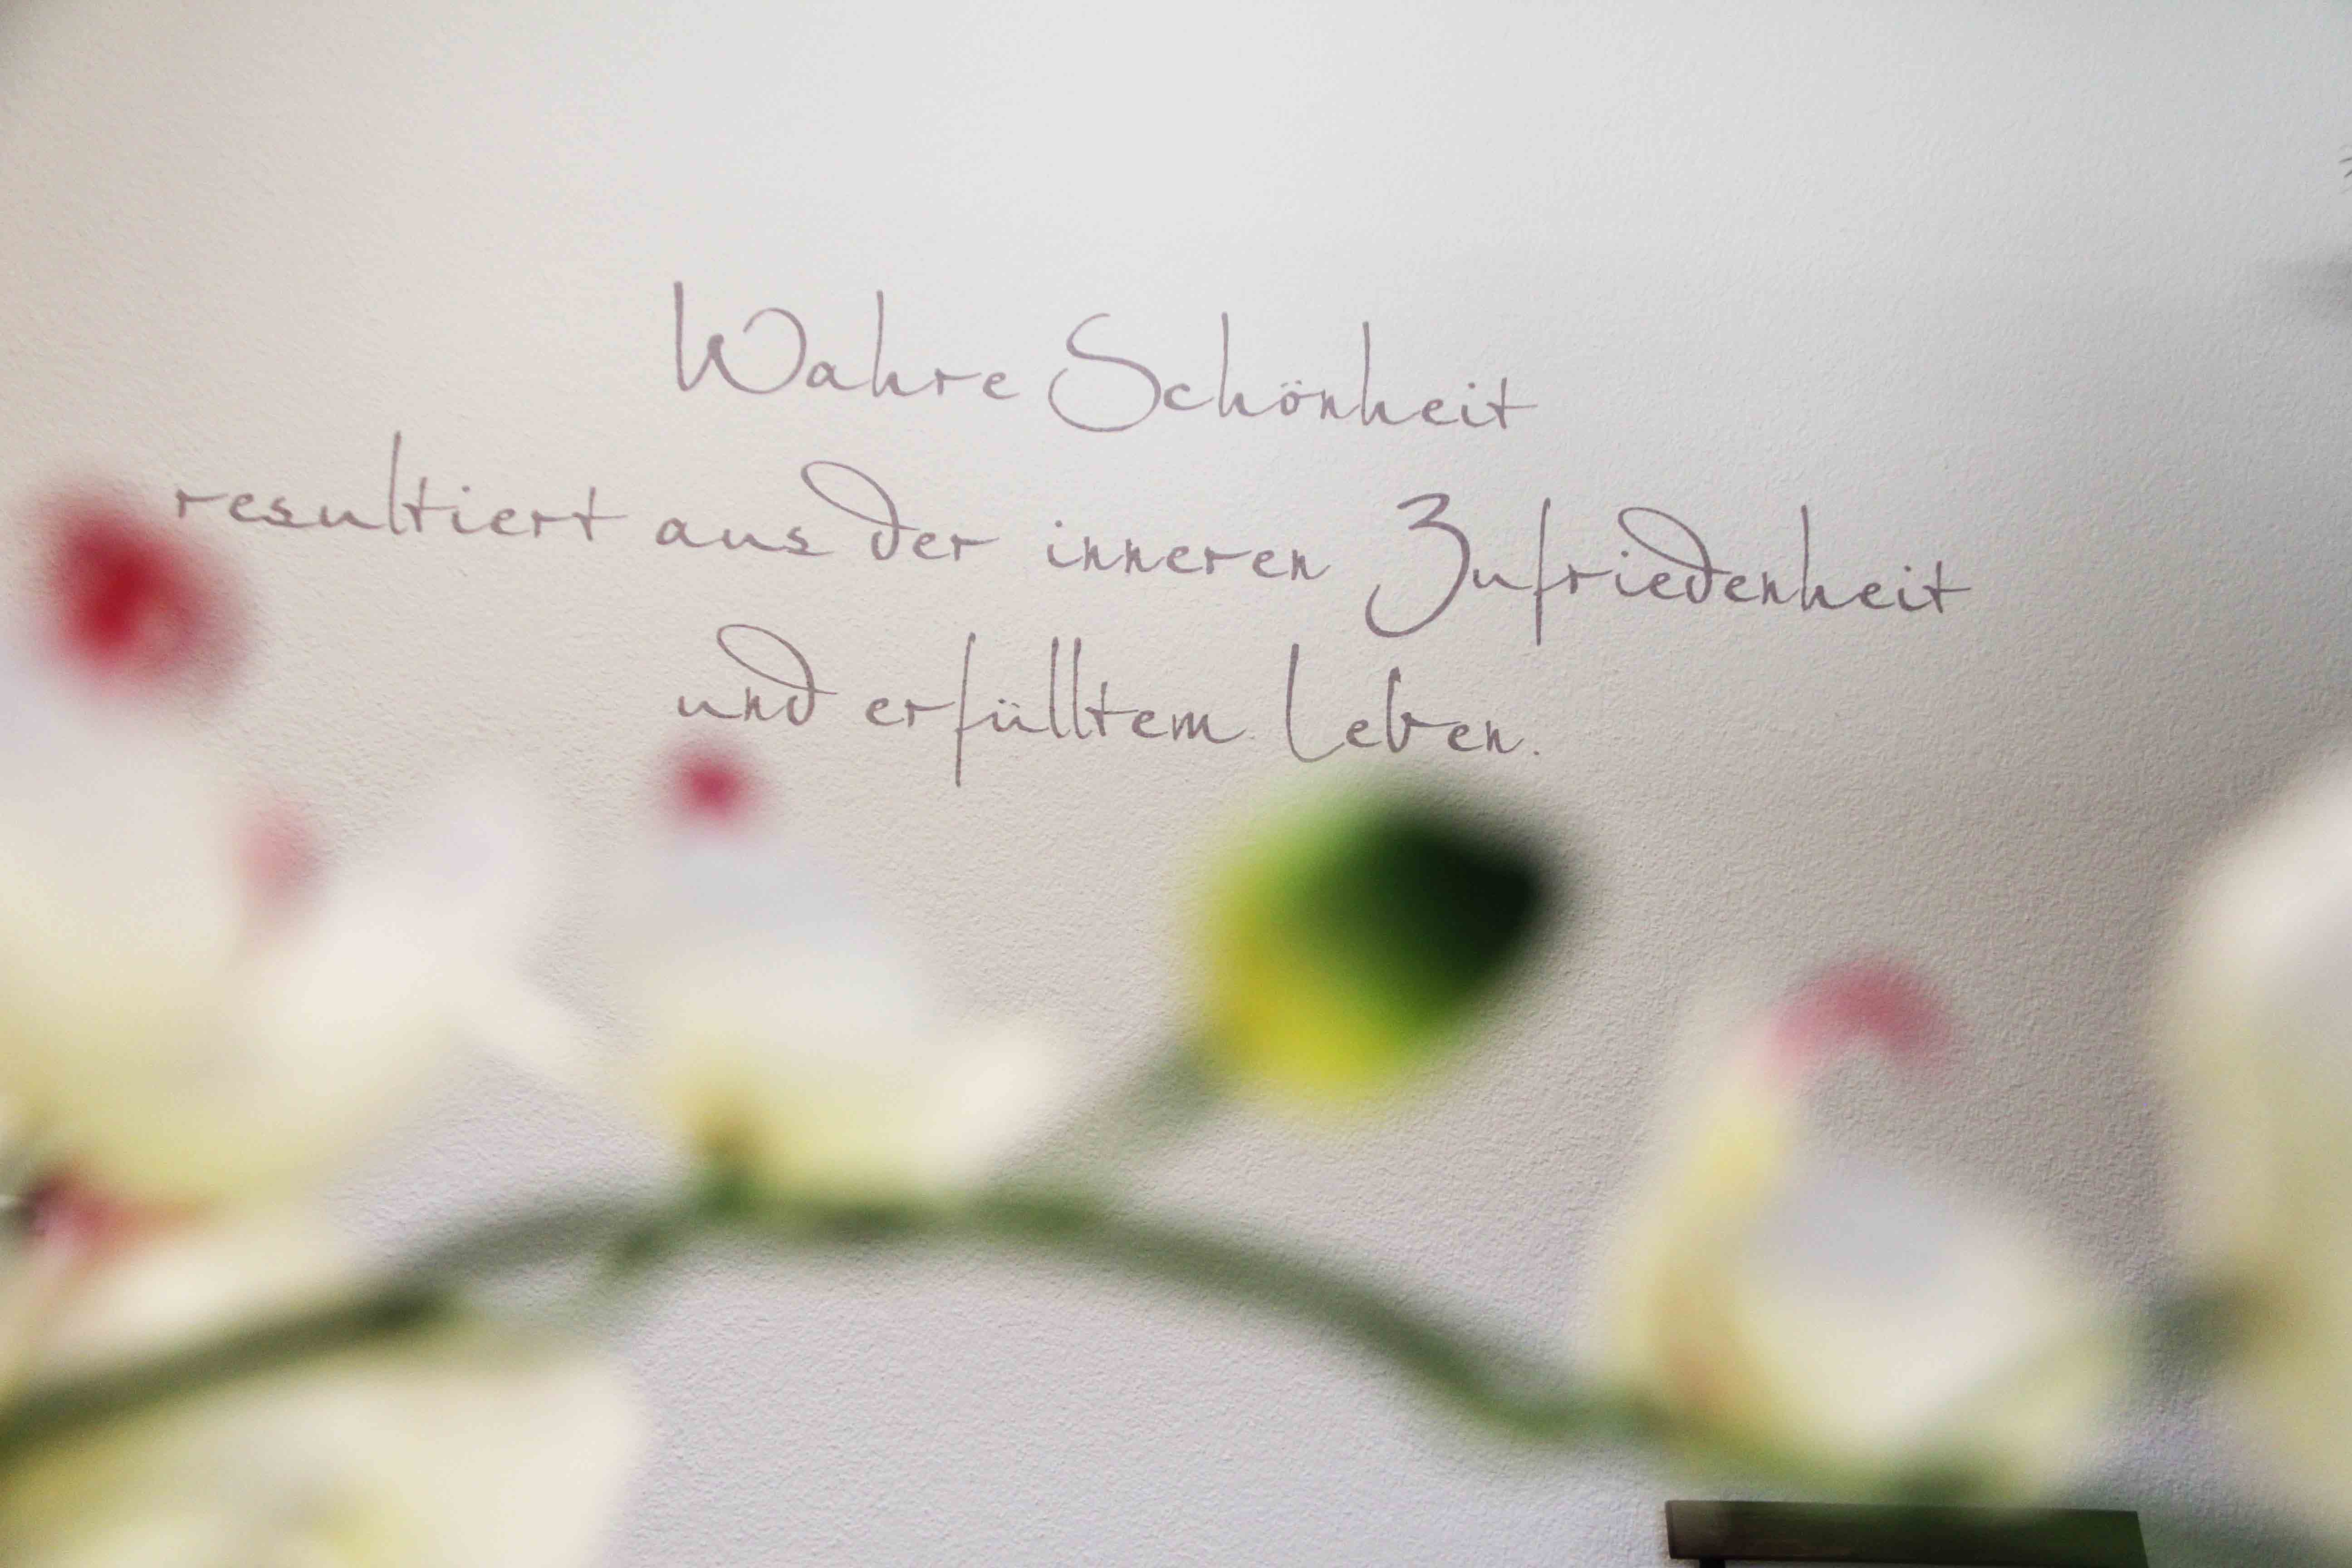 Wahre Schönheit
resultiert aus der inneren Zufriedenheit
und erfülltem Leben.